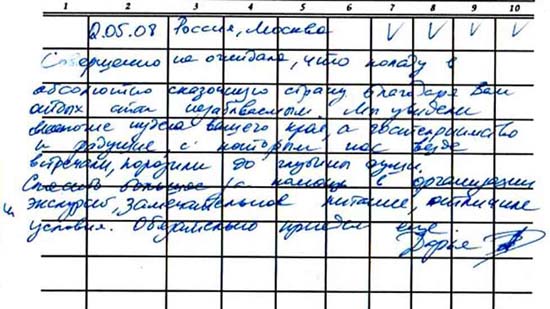 1 2 3 4 5 6 7 8 9 10
2.05.08 Россия, Москва V V V V
Совершенно не ожидала, что попаду в
абсолютно сказочную страну благодаря Вам
отдых стал незабываемым. Мы увидели
многие чудеса вашего края, а гостеприимство
и радушие, с которым нас везде
встречали, поразили до глубины души.
Спасибо большое за помощь в организации
экскурсий, замечательное питание, отличные
условия. Обязательно приедем ещё.
Дарья